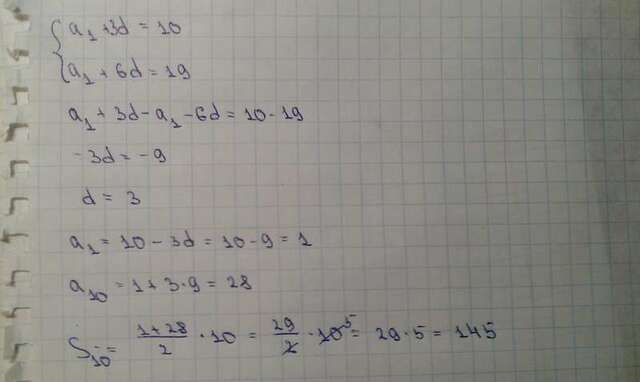 a₁ + 3d = 10
a₁ + 6d = 19
a₁ + 3d - a₁ - 6d = 10 - 19
-3d = -9
d = 3
a₁ = 10 - 3d = 10 - 9 = 1
a₁₀ = 1 + 3 · 9 = 28
S₁₀ = (1 + 28)/2 · 10 = 29/2 · 10⁵ = 29 · 5 = 145